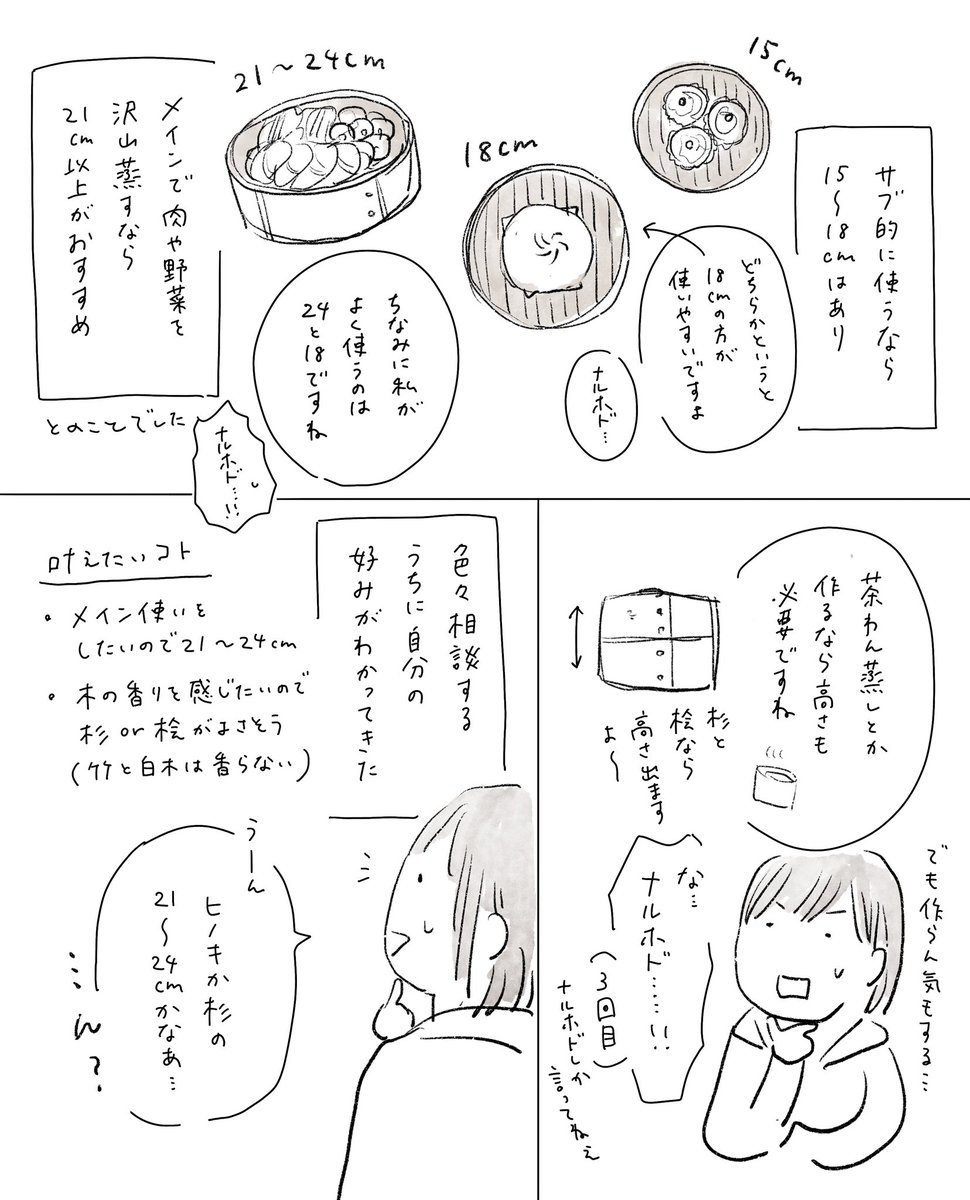 15cm
サブ的に使うなら
15〜18cmはあり
18cm
どちらかというと
18cmの方が
使いやすいですよ
ナルホド…
21〜24cm
ちなみに私が
よく使うのは
24と18ですね
メインで肉や野菜を
沢山蒸すなら
21cm以上がおすすめ
とのことでした
ナルホド……!!
茶わん蒸しとか
作るなら高さも
必要ですね
杉と
桧なら
高さ出ます
よ〜
でも作らん気もする…
な…
ナルホド……!!
(3回目)
ナルホドしか
言ってねぇ
色々相談する
うちに自分の
好みがわかってきた
叶えたいコト
・メイン使いを
したいので21〜24cm
・木の香りを感じたいので
杉or桧がよさそう
(竹と白木は香らない)
うーん
ヒノキか杉の
21〜24cmかなあ…
…ん?